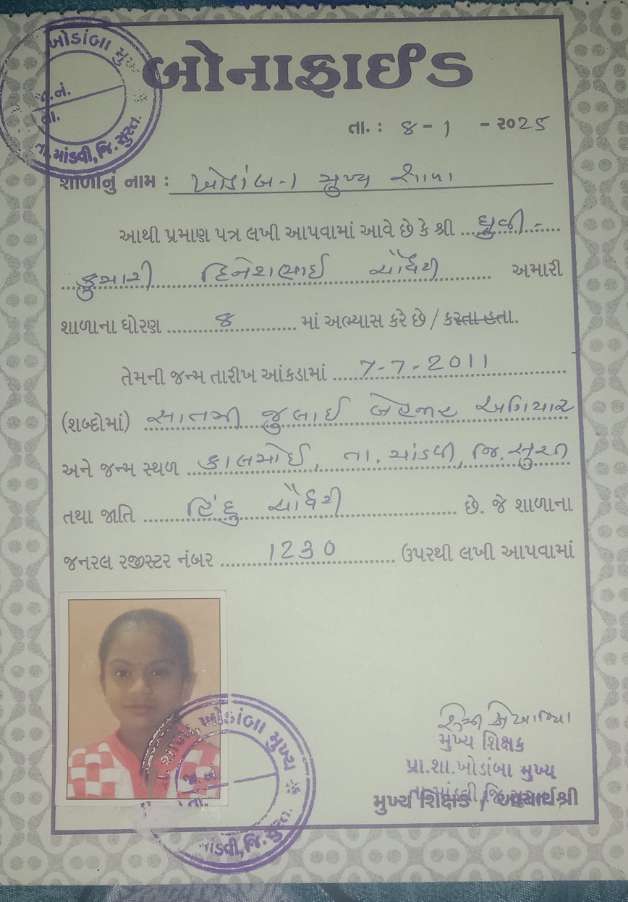 ખોડાંબા મુખ્ય
જા.નં.
તા.
તા.માંડવી, જિ.સુરત.
બોનાફાઈડ
તા. : ૪ - ૧ - ૨૦૨૫
શાળાનું નામ : ખોડાંબા મુખ્ય શાળા
આથી પ્રમાણ પત્ર લખી આપવામાં આવે છે કે શ્રી
કુમારી દિનેશભાઈ ચૌધરી અમારી
શાળાના ધોરણ ૪ માં અભ્યાસ કરે છે / કરતા હતા.
તેમની જન્મ તારીખ આંકડામાં 7-7-2011
(શબ્દોમાં) સાતમી જુલાઈ બેહજાર અગિયાર
અને જન્મ સ્થળ તા. માંડવી, જિ.
તથા જાતિ હિંદુ ચૌધરી છે. જે શાળાના
જનરલ રજીસ્ટર નંબર 1230 ઉપરથી લખી આપવામાં
ખોડાંબા મુખ્ય
જા.નં.
તા.
માંડવી, જિ.સુરત.
મુખ્ય શિક્ષક
પ્રા.શા.ખોડાંબા મુખ્ય
તા.માંડવી, જિ.
મુખ્ય શિક્ષક / આચાર્યશ્રી